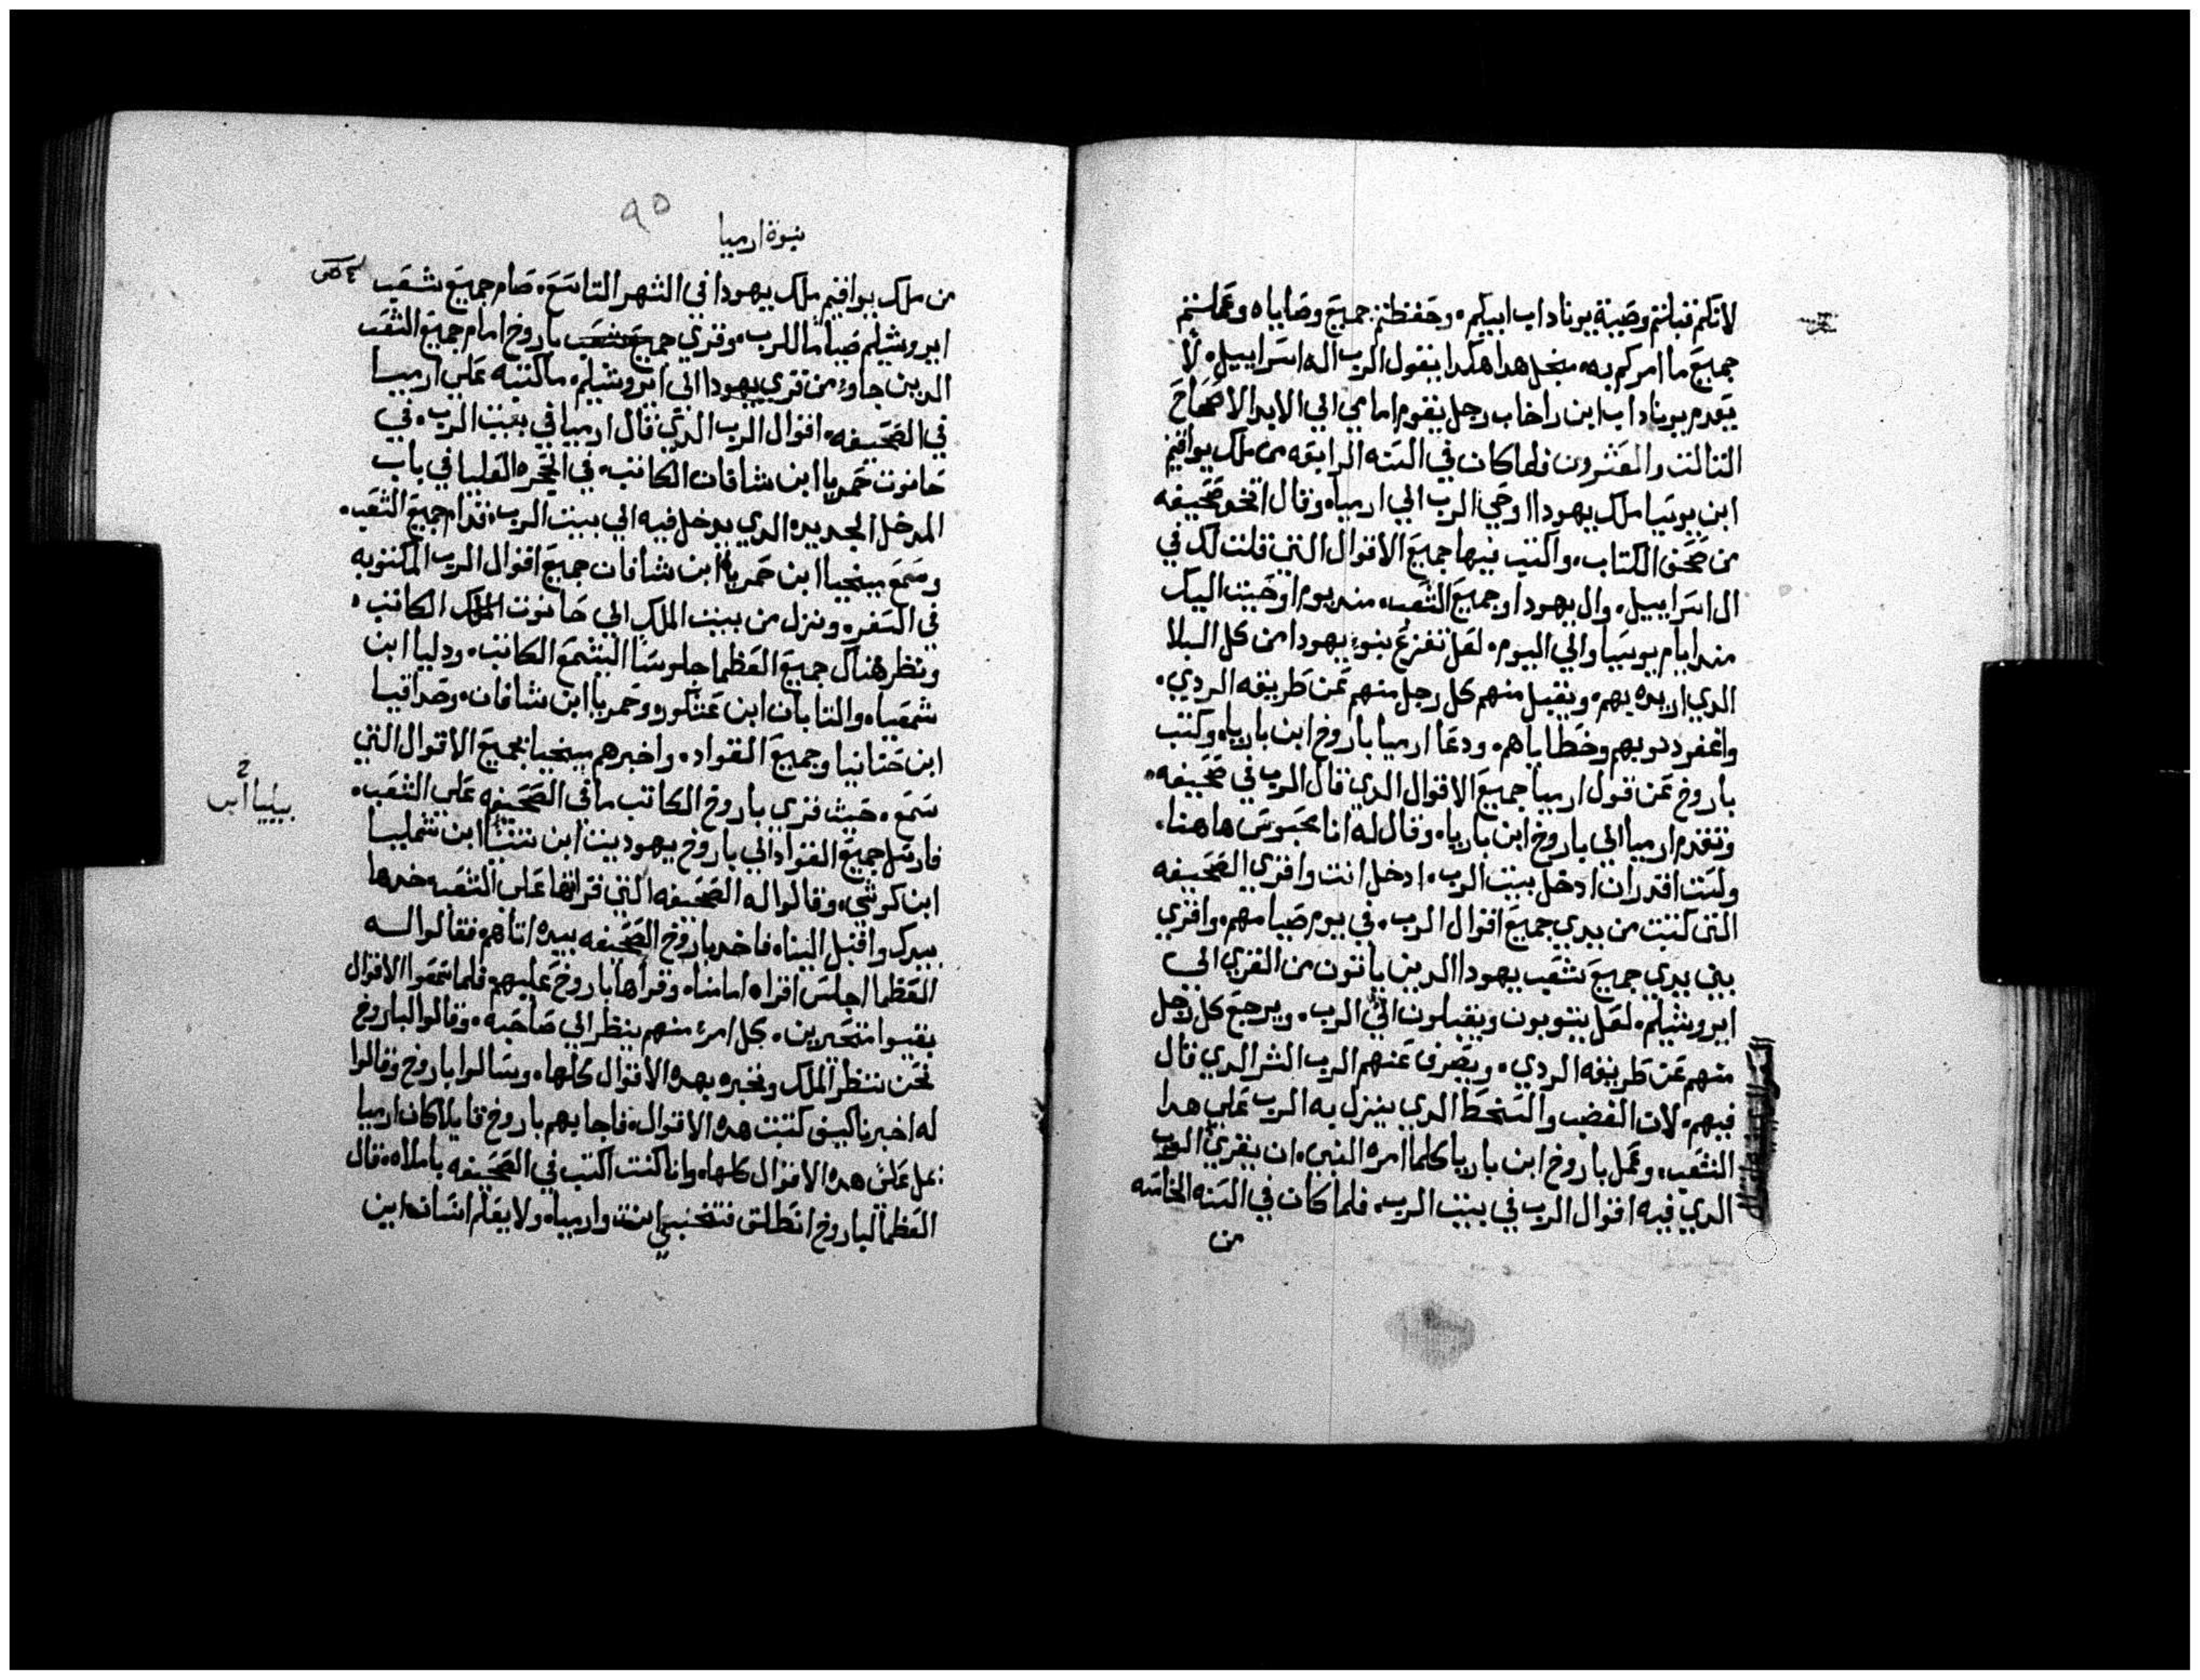 لانكم قبلتم وصية يوناداب ابيكم. وحفظتم جميع وصاياه وعملتم
جميع ما امركم به. منجل هدا هكدا يقول الرب اله اسراييل. لا
يعدم يوناداب ابن راخاب رجل يقوم امامي الي الابد الاصحاح
التالت والعشرون فلما كان في السنه الرابعه من ملك يواقيم
ابن يوسيا ملك يهودا اوحي الرب الي ارميا. وقال اتخد صحيفه
من صحف الكتاب. واكتب فيها جميع الاقوال التي قلت لك في
ال اسراييل. وال يهودا وجميع الشعب. مند يوم اوحيت اليك
مند ايام يوسيا والي اليوم. لعل تفزع بنو يهودا من كل البلا
الدي اريده بهم. ويقبل منهم كل رجل منهم عن طريقه الردي.
واغفر دنوبهم وخطاياهم. ودعا ارميا باروخ ابن باريا. وكتب
باروخ عن قول ارميا جميع الاقوال الدي قال الرب في صحيفه.
وتقدم ارميا الي باروخ ابن باريا. وقال له انا محبوس هاهنا.
ولست اقدر ان ادخل بيت الرب. ادخل انت واقري الصحيفه
التي كتبت من يدي جميع اقوال الرب. في يوم صيامهم. واقري
بين يدي جميع شعب يهودا الدين ياتون من القري الي
ايروشليم. لعل يتوبون ويقبلون الي الرب. ويرجع كل رجل
منهم عن طريقه الردي. ويصرف عنهم الرب الشر الدي قال
فيهم. لان الغضب والسخط الدي ينزل به الرب علي هدا
الشعب. وعمل باروخ ابن باريا كلما امره النبي. ان يقري
الدي فيه اقوال الرب في بيت الرب. فلما كان في السنه الخامسه
من
٩٥
نبوة ارميا
من ملك يواقيم ملك يهودا في الشهر التاسع. صام جميع شعب
ايروشليم صياما للرب. وقري باروخ امام جميع الشعب
الدين جاوء من قري يهودا الي ايروشليم. ما كتبه علي ارميا
في الصحيفه. اقوال الرب الدي قال ارميا في بيت الرب. في
حانوت حمريا ابن شافان الكاتب. في الحجره العليا في باب
المدخل الجديده الدي يدخل فيه الي بيت الرب. قدام جميع الشعب.
وسمع ميخيا ابن حمريا ابن شافان جميع اقوال الرب المكتوبه
في السفر. ونزل من بيت الملك الي حانوت الملك الكاتب.
ونظر هناك جميع العظما جلوسا اليشمع الكاتب. ودليا ابن
شمعيا. والناتان ابن عنكور. وحمريا ابن شافان. وصداقيا
ابن حنانيا وجميع القواد. واخبرهم ميخيا بجميع الاقوال التي
سمع. حيث قري باروخ الكاتب ما في الصحيفه علي الشعب.
فارسل جميع القواد الي باروخ يهوديت ابن نتنيا ابن شمليا
ابن كوشي. وقالوا له الصحيفه التي قراتها علي الشعب خدها
بيدك واقبل الينا. فاخد باروخ الصحيفه بيده اتاهم. فقالوا له
العظما اجلس اقراه امامنا. وقراها باروخ عليهم. فلما سمعوا الاقوال
بقيوا متحيرين. كل امرء منهم ينظر الي صاحبه. وقالوا لباروخ
نحن ننتظر الملك ونخبره بهده الاقوال كلها. وسالوا باروخ وقالوا
له اخبرنا كيف كتبت هده الاقوال. فاجابهم باروخ قايلا كان ارميا
يمل علي هده الاقوال كلها. وانا كنت اكتب في الصحيفه باملاه. قال
العظما لباروخ انطلق فتختبي انت وارميا. ولا يعلم انسان اين